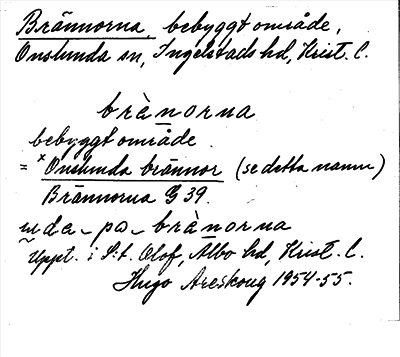 Brännorna, bebyggt område,
Onslunda sn, Ingelstads hd, Krist. l.
brànorna
bebyggt område
= ˣOnslunda brännor (se detta namn)
Brännorna G 39.
da - pɑ - brànorna
Uppt. i S:t. Olof, Albo hd, Krist. l.
Hugo Areskoug 1954-55.